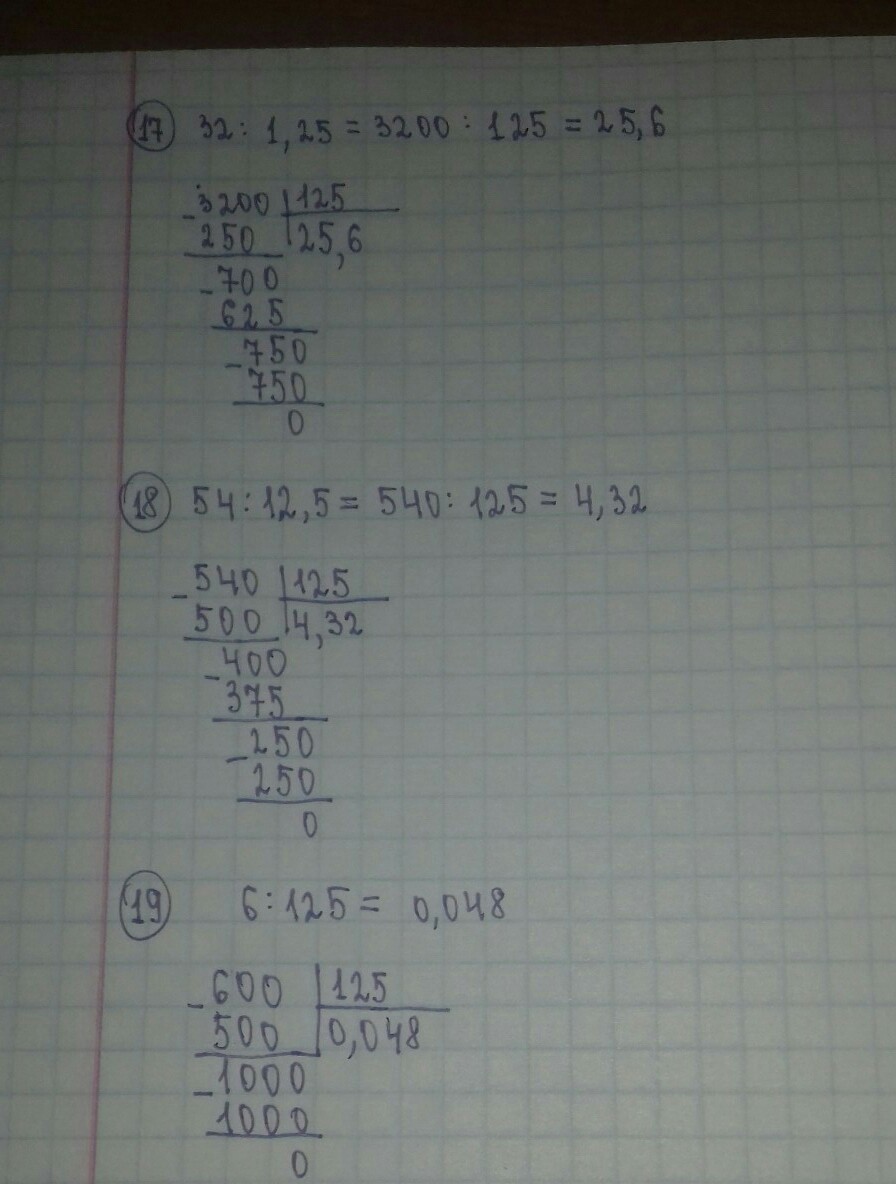 17 32 : 1,25 = 3200 : 125 = 25,6
- 3200 | 125
250 | 25,6
- 700
625
- 750
750
0
18 54 : 12,5 = 540 : 125 = 4,32
- 540 | 125
500 | 4,32
- 400
375
- 250
250
0
19 6 : 125 = 0,048
- 600 | 125
500 | 0,048
- 1000
1000
0